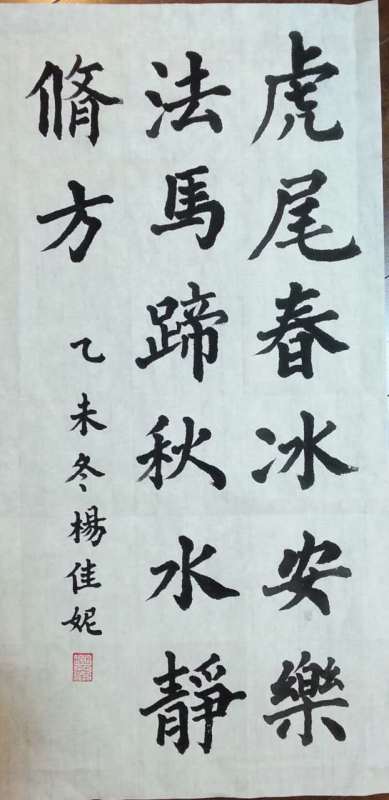 虎尾春冰安樂
法馬蹄秋水靜
脩方
乙未冬楊佳妮